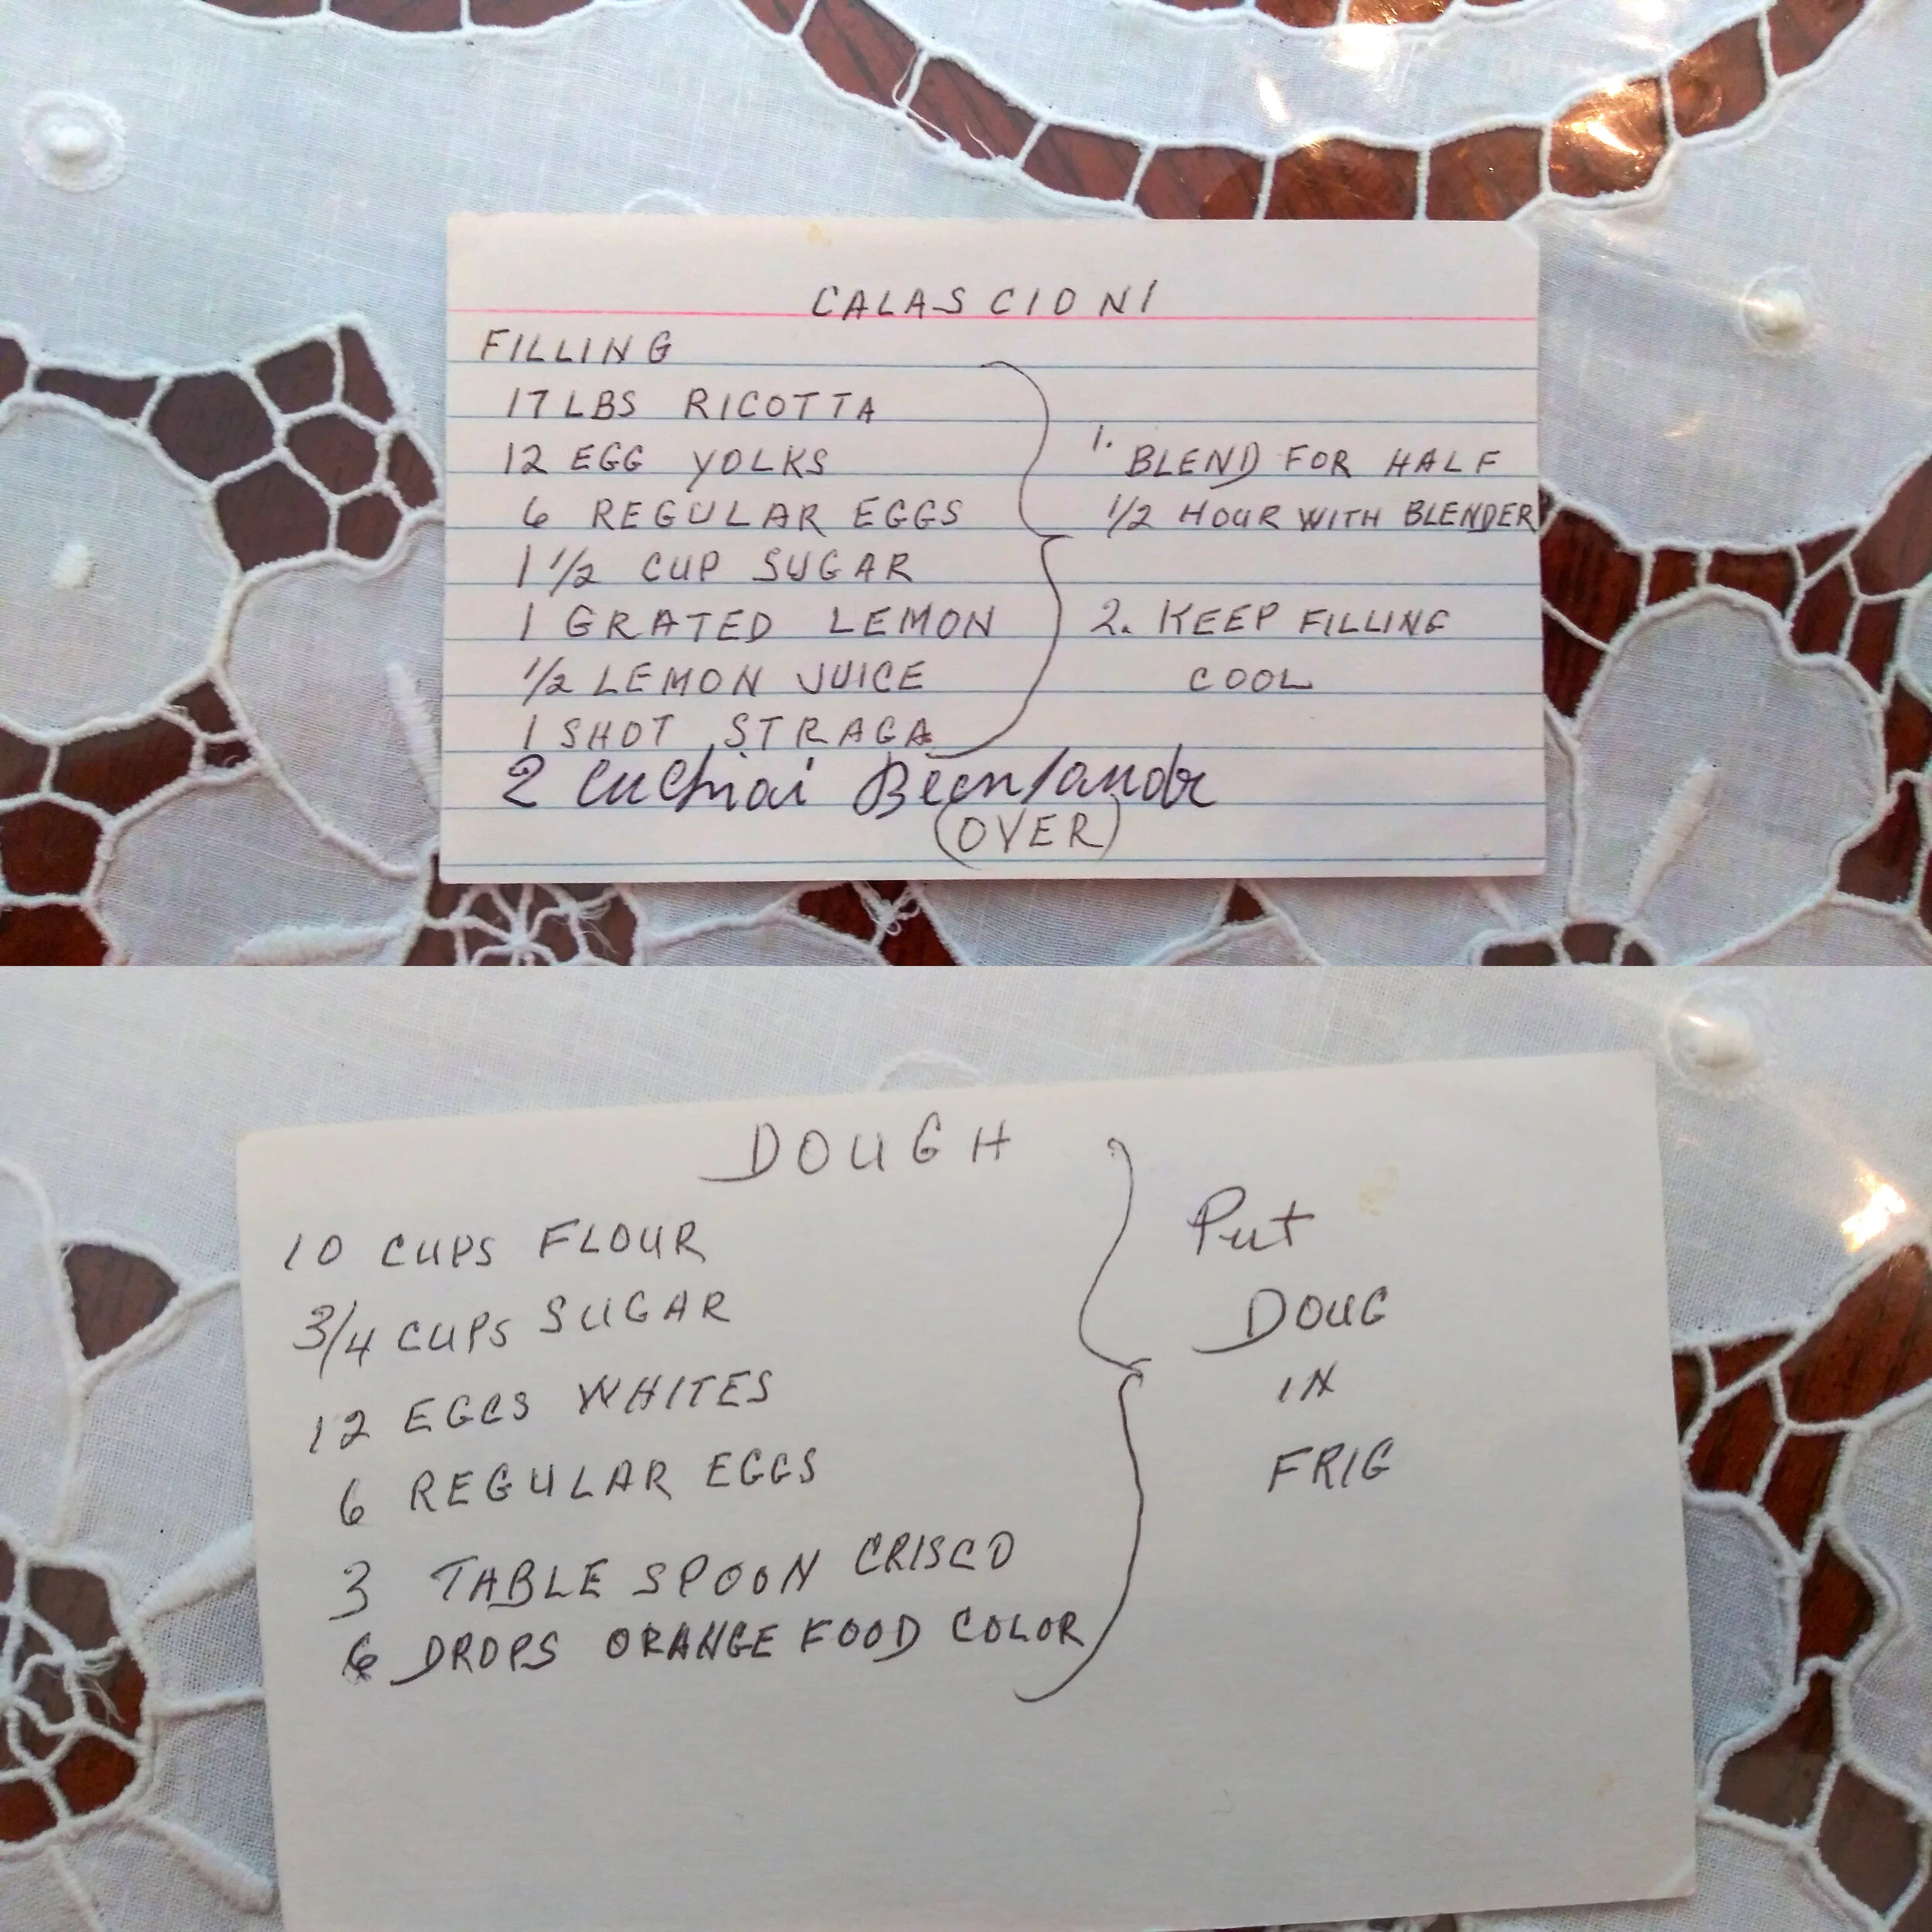 CALASCIONI
FILLING
17 LBS RICOTTA
12 EGG YOLKS
6 REGULAR EGGS
1 1/2 CUP SUGAR
1 GRATED LEMON
1/2 LEMON JUICE
1 SHOT STRAGA
2 cuchiai
(OVER)
1. BLEND FOR HALF
1/2 HOUR WITH BLENDER
2. KEEP FILLING
COOL
DOUGH
10 CUPS FLOUR
3/4 CUPS SUGAR
12 EGGS WHITES
6 REGULAR EGGS
3 TABLE SPOON CRISCO
6 DROPS ORANGE FOOD COLOR
Put
DOUG
IN
FRIG